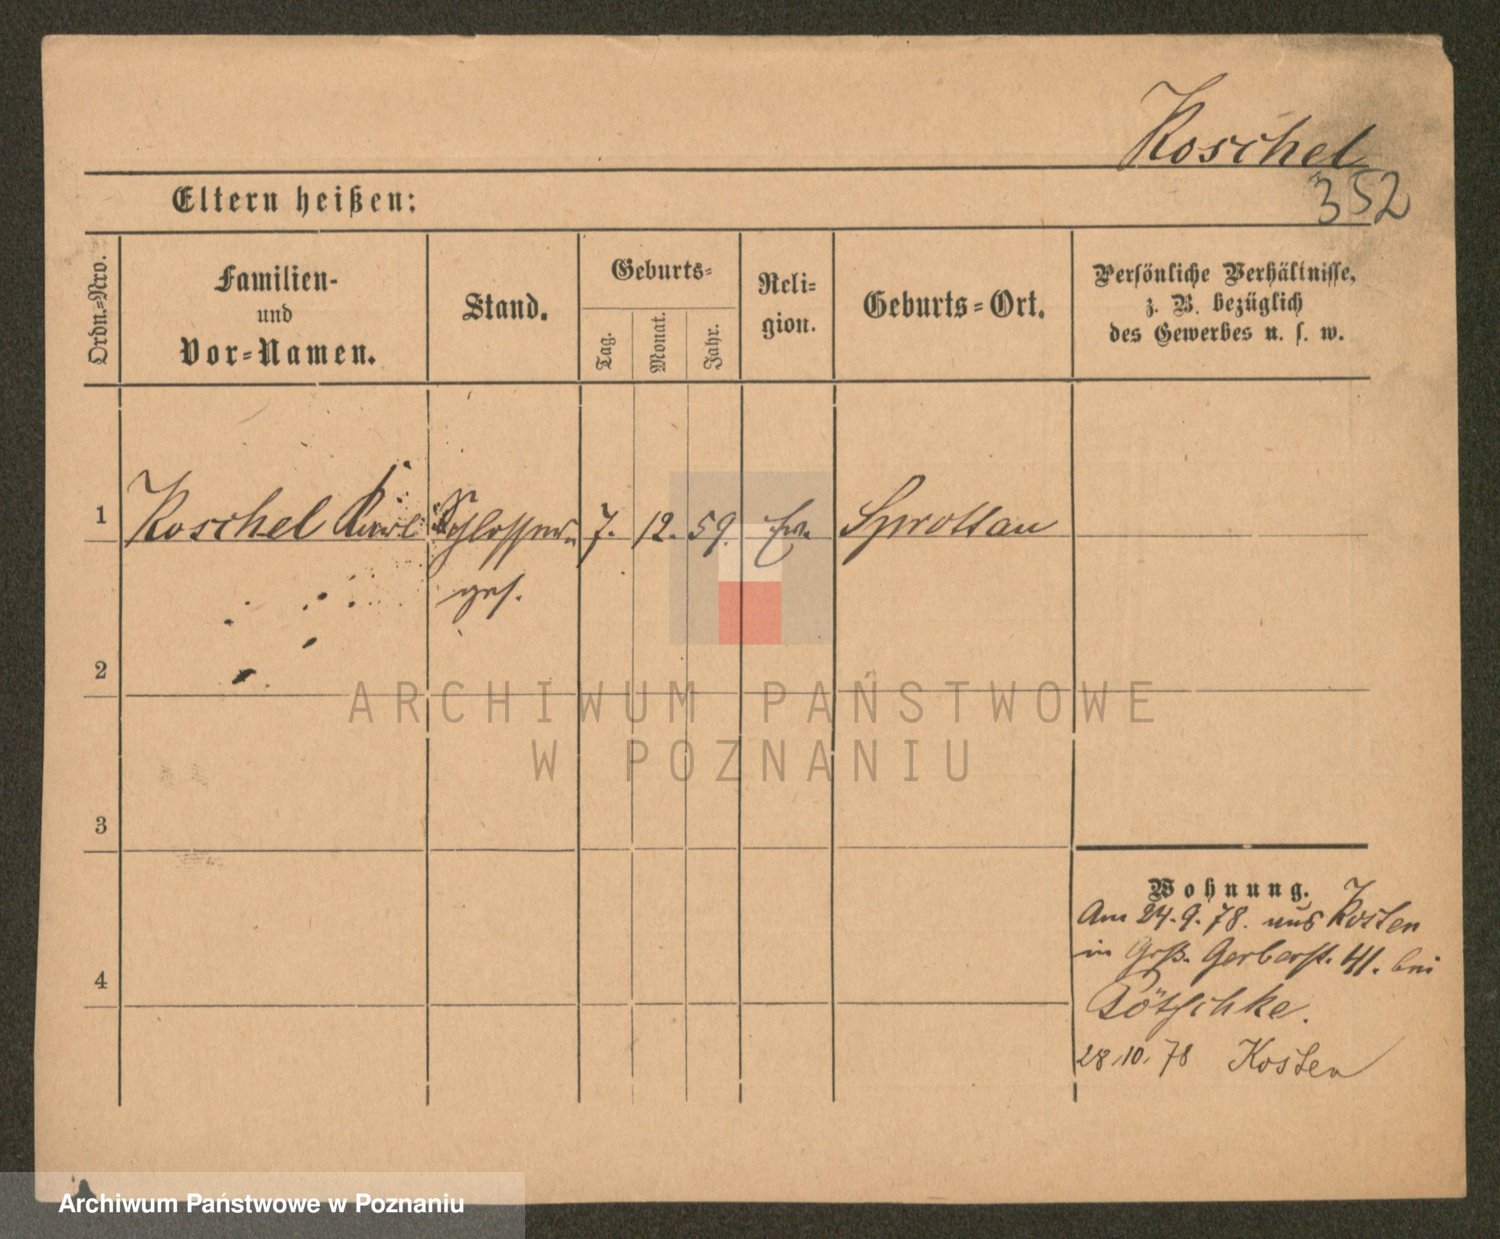 Koschel
352
Eltern heißen:
Ordn.-Nro.
Familien-
und
Vor-Namen.
Stand.
Geburts-
Tag.
Monat.
Jahr.
Reli-
gion.
Geburts-Ort.
Persönliche Verhältnisse,
z. B. bezüglich
des Gewerbes u. s. w.
1 Koschel Karl Schlosser- 7. 12. 59. Ev. Sprottau
ges.
2
3
4
Wohnung.
Am 24.9.78. aus Kosten
in Grß. Gerberst. 41. bei
Pötschke.
28.10.78 Kosten
ARCHIWUM PAŃSTWOWE
W POZNANIU
Archiwum Państwowe w Poznaniu